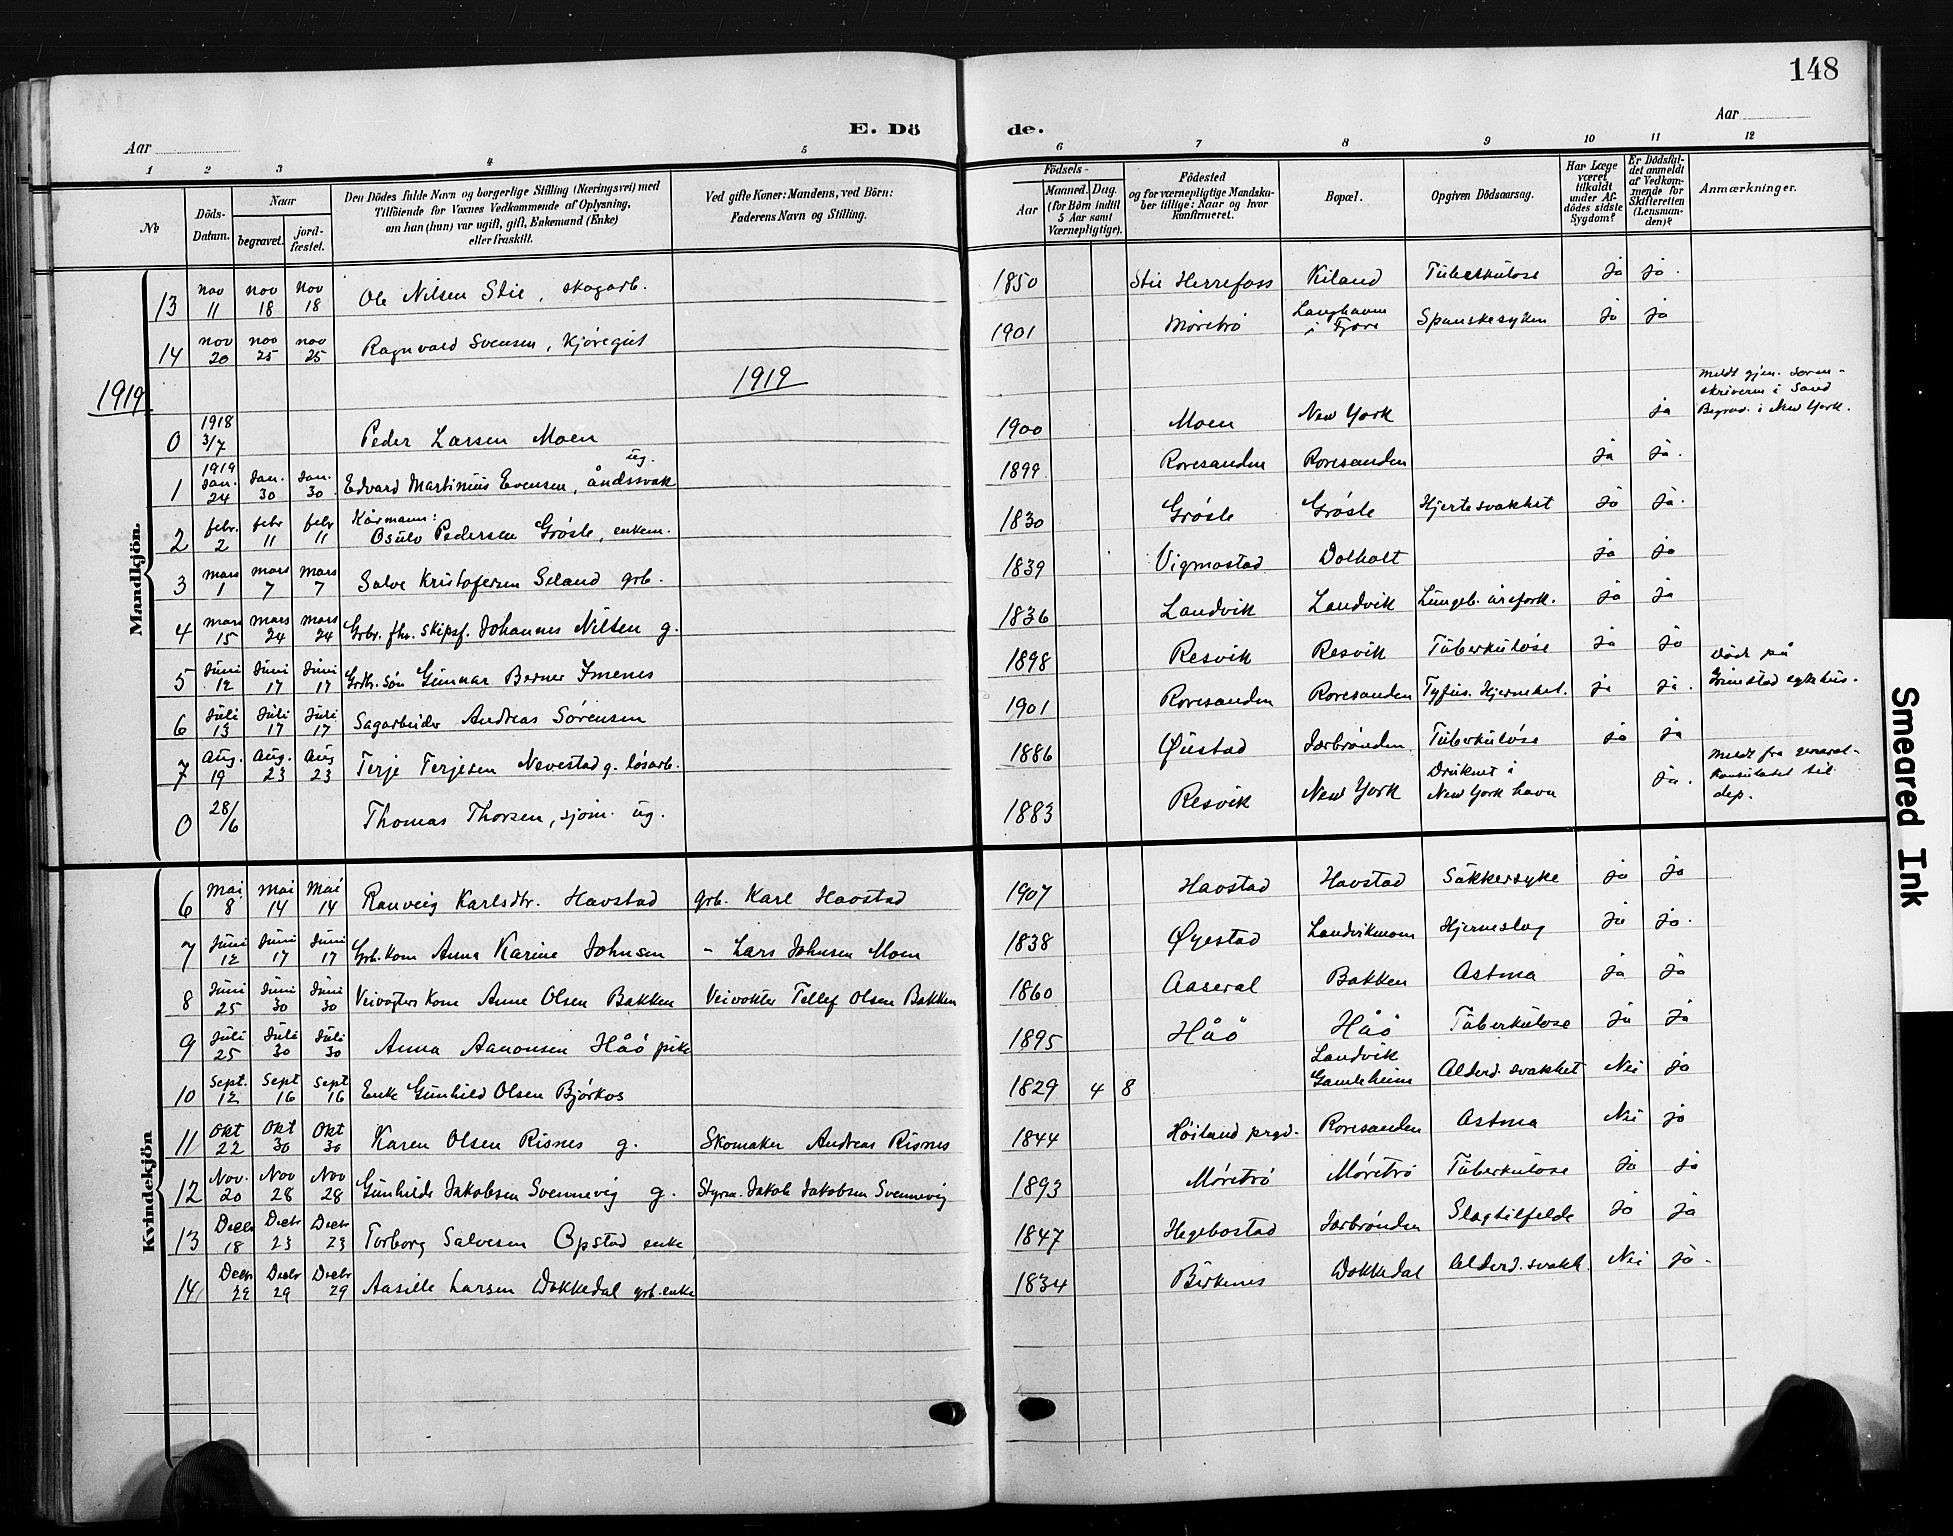 148
E. Döde.
Aar
Aar
1 2 3 4 5 6 7 8 9 10 11 12
№
Döds-Datum.
Naar
begravet.
jord-fæstet.
Den Dödes fulde Navn og borgerlige Stilling (Næringsvei) med
Tilföiende for Voxnes Vedkommende af Oplysning,
om han (hun) var ugift, gift, Enkemand (Enke)
eller fraskilt.
Ved gifte Koner: Mandens, ved Börn:
Faderens Navn og Stilling.
Födsels-
Aar
Maaned. Dag.
(for Börn indtil
5 Aar samt
Værnepligtige).
Födested
og for værnepligtige Mandska-
ber tillige: Naar og hvor
konfirmeret.
Bopæl.
Opgiven Dödsaarsag.
Har Læge
været
tilkaldt
under Af-
dödes sidste
Sygdom?
Er Dödsfal-
det anmeldt
af Vedkom-
mende for
Skifteretten
(Lensman-
den)?
Anmærkninger.
Mandkjön.
13 nov 11 nov 18 nov 18 Ole Nilsen Stie, skogarb. 1850 Stie Herrefoss Kiland Tuberkulose ja ja.
14 nov 20 nov 25 nov 25 Ragnvald Svensen, Kjøregut 1901 Møretrø i Fjære Spanskesyken ja ja
1919 1919
0 1918 3/7 Peder Larsen Moen 1900 Moen New York ja Meldt gjen. Soren-skriveren i Sand Begrav. i New York.
1 1919 Jan. 24 Jan. 30 Jan. 30 Edvard Martinius Evensen, ug. åndssvak 1899 Roresanden Roresanden ja ja.
2 febr. 2 febr 11 febr 11 Kårmann: Osulv Pedersen Grøsle, enkem. 1830 Grøsle Grøsle Hjertesvakhet ja ja.
3 mars 1 mars 7 mars 7 Salve Kristofersen Seland grb. 1839 Vigmostad Dolholt ja ja
4 mars 15 mars 24 mars 24 Grbr. fhv. skipsf. Johannes Nilsen g. 1836 Landvik Landvik Lungeb. årefork. ja ja
5 Juni 12 Juni 17 Juni 17 Grbr. søn Gunnar Berner Imenes 1898 Resvik Resvik Tuberkuløse ja ja
6 Juli 13 Juli 17 Juli 17 Sagarbeider Andreas Sørensen 1901 Roresanden Roresanden Tyfus. Hjernebet. ja ja. død på Grimstad sykehus.
7 Aug. 19 Aug. 23 Aug 23 Terje Terjesen Nevestad g. løsarb. 1886 Øustad Jorbrønden Tuberkuløse ja ja
0 28/6 Thomas Thorsen, sjøm. ug. 1883 Resvik New York Druknet i New York havn ja. Meldt fra general-konsulatet til dep.
Kvindekjön
6 Mai 8 Mai 14 Mai 14 Ranveig Karlsdtr. Havstad grb. Karl Havstad 1907 Havstad Havstad Sukkersyke ja ja
7 Juni 12 Juni 17 Juni 17 Grb. kone Anna Karine Johnsen - Lars Johnsen Moen 1838 Øyestad Landvikmoen Hjerneslag ja ja.
8 Juni 25 Juni 30 Juni 30 Veivogters kone Anne Olsen Bakken Veivokter Tellef Olsen Bakken 1860 Aaseral Bakken Astma ja ja
9 Juli 25 Juli 30 Juli 30 Anna Aanonsen Håø pike 1895 Håø Håø Tuberkulose ja ja
10 Sept. 12 Sept 16 Sept 16 Enke Gunhild Olsen Bjørkos 1829 4 8 Landvik Gamleheim Alderd. svakhet Nei ja
11 Okt 22 Okt 30 Okt 30 Karen Olsen Risnes g. Skomaker Andreas Risnes 1844 Høiland prgd. Roresanden Astma Nei ja
12 Nov. 20 Nov 28 Nov 28 Gunhilde Jakobsen Svennevig g. Styrm. Jakob Jakobsen Svennevig 1893 Møretrø Møretrø Tuberkulose ja ja
13 Decbr 18 Decbr 23 Decbr 23 Torborg Salvesen Opstad enke 1847 Hegebostad Jorbrønden Slagtilfelde ja ja
14 Decbr 22 Decbr 29 Decbr 29 Aasille Larsen Dokkedal grb. enke 1834 Birkenes Dokkedal Alderd. svakh. Nei ja.
Smeared Ink